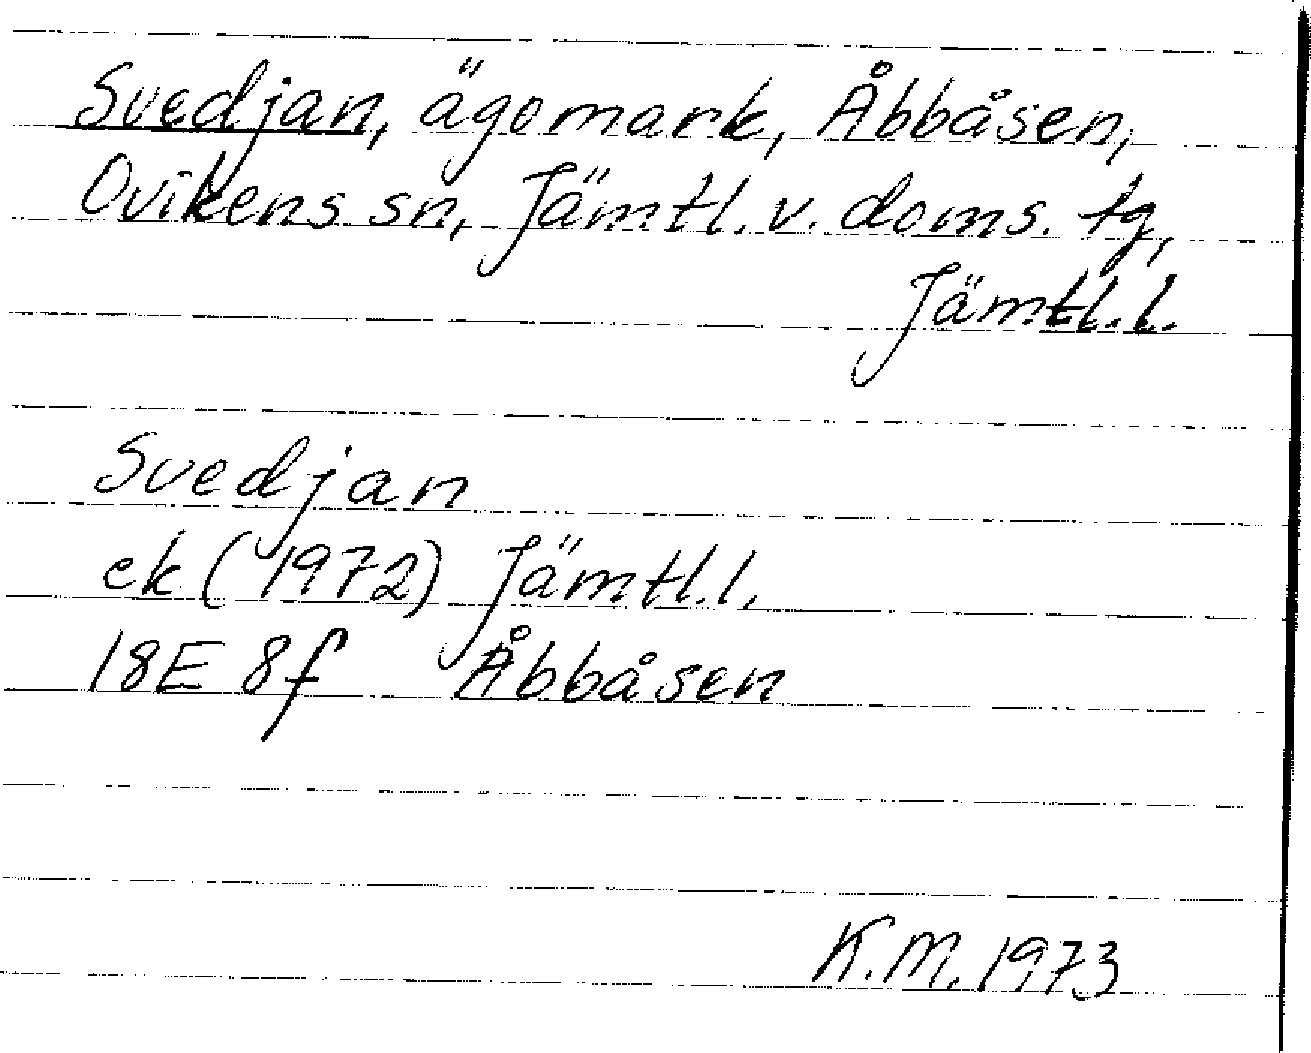 Svedjan, ägomark, Åbbåsen,
Ovikens sn, Jämtl. v. doms. tg,
Jämtl.l.
Svedjan
ek (1972) Jämtl.l.
18E 8f Åbbåsen
K.M. 1973